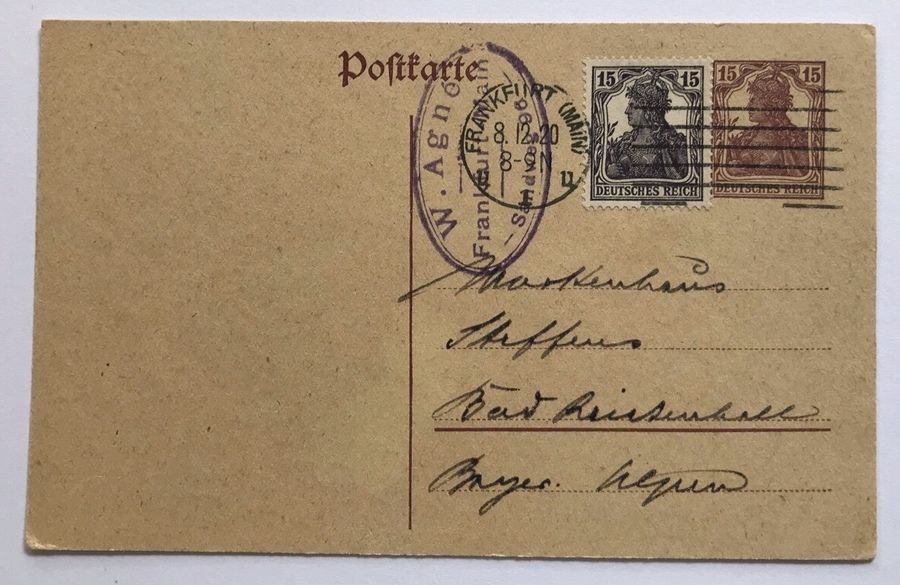 Postkarte
W. Agne
Frankfurt Main
Sandweg 96
FRANKFURT (MAIN)
8.12.20
8-9 N
15 15
DEUTSCHES REICH
15 15
DEUTSCHES REICH
Markenhaus
Steffens
Bad Reichenhall
Bayer. Alpen